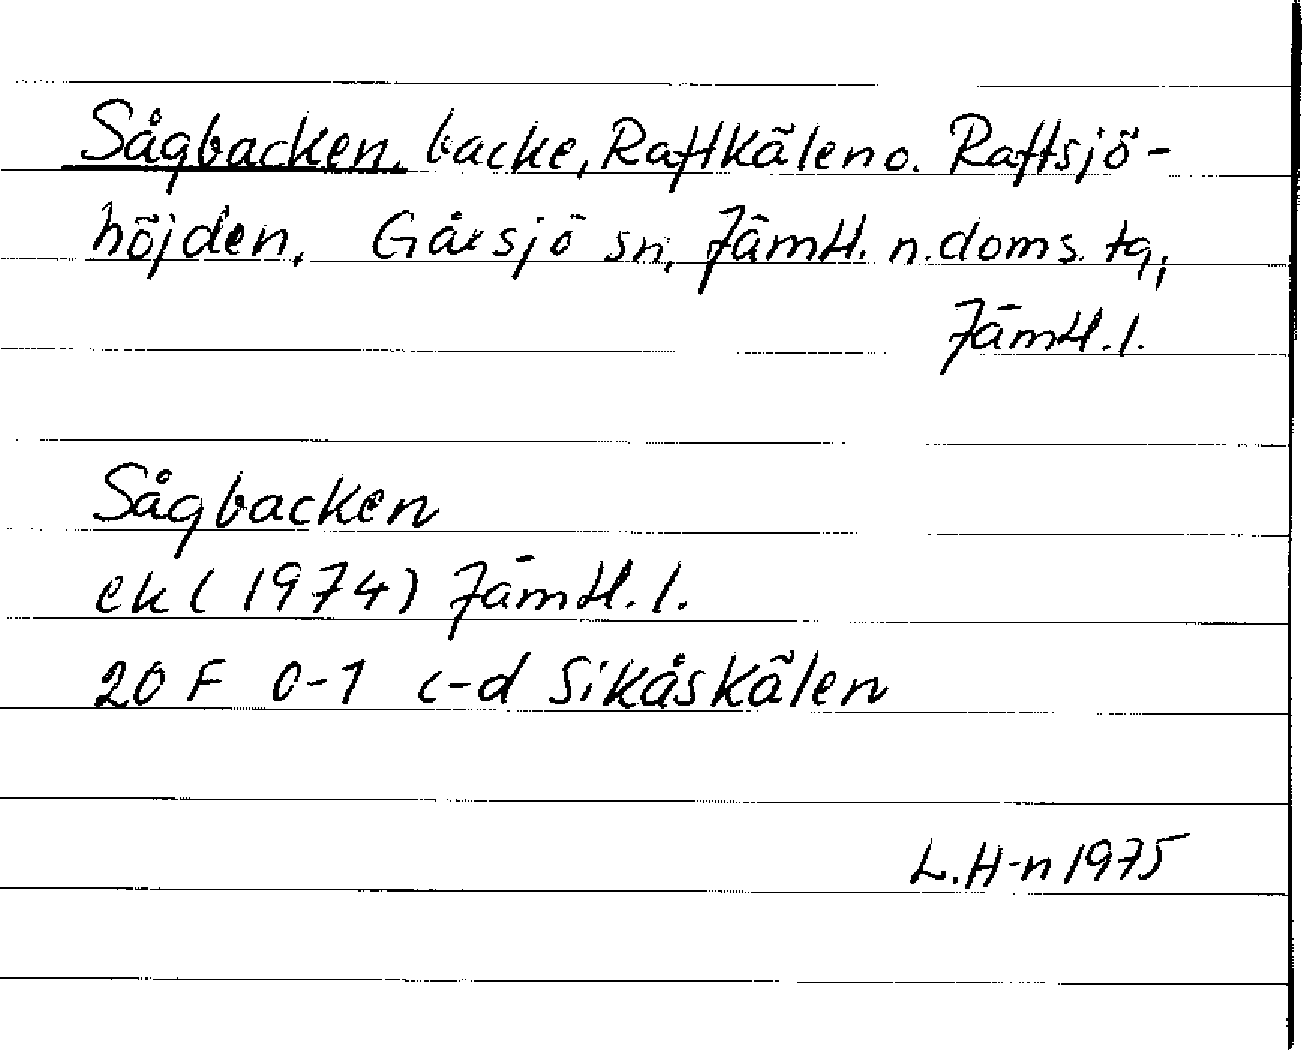 Sågbacken, backe, Raftkälen o. Raftsjö-
höjden, Gåxsjö sn, Jämtl. n. doms. tg,
Jämtl. l.
Sågbacken
ek (1974) Jämtl. l.
20 F 0-1 c-d Sikåskälen
L. H-n 1975